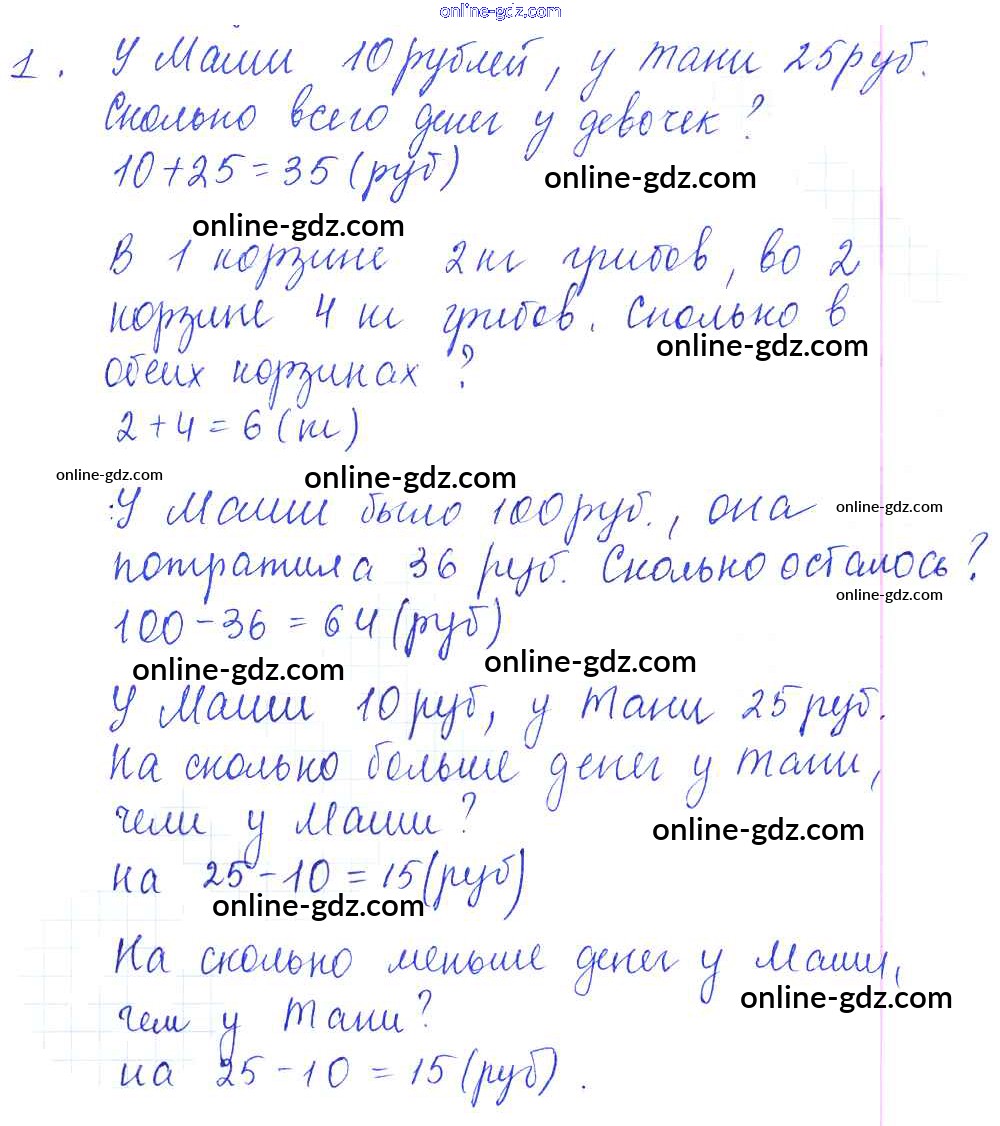 online-gdz.com
1. У Маши 10 рублей, у Тани 25 руб.
Сколько всего денег у девочек?
10+25=35 (руб)
online-gdz.com
online-gdz.com
В 1 корзине 2 кг грибов, во 2
корзине 4 кг грибов. Сколько в
online-gdz.com
обеих корзинах?
2+4=6 (кг)
online-gdz.com
online-gdz.com
У Маши было 100 руб., она
online-gdz.com
потратила 36 руб. Сколько осталось?
online-gdz.com
100-36=64 (руб)
online-gdz.com
online-gdz.com
У Маши 10 руб, у Тани 25 руб.
На сколько больше денег у Тани,
чем у Маши?
online-gdz.com
на 25-10=15 (руб)
online-gdz.com
На сколько меньше денег у Маши,
online-gdz.com
чем у Тани?
на 25-10=15 (руб).